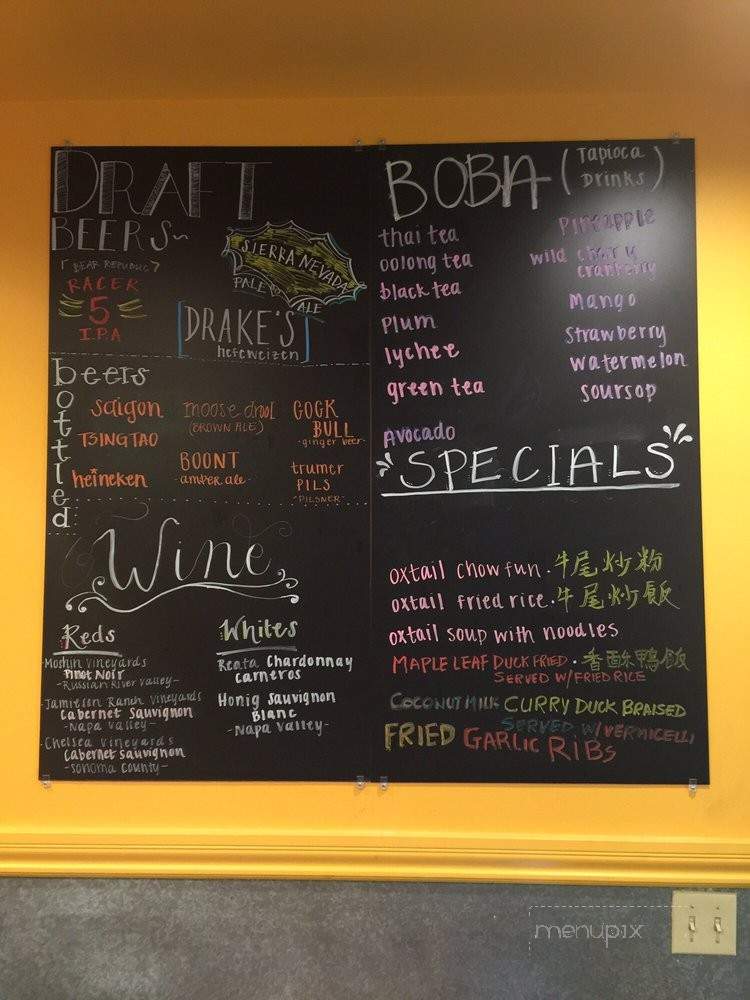 DRAFT
BEERS~
[BEAR REPUBLIC]
RACER
5
IPA
SIERRA NEVADA
PALE
ALE
[DRAKE'S
hefeweizen]
bottled
beers
saigon
TSINGTAO
heineken
moose drool
(BROWN ALE)
BOONT
-amber ale-
COCK
BULL
-ginger beer-
trumer
PILS
-PILSNER-
Wine
Reds
-Moshin Vineyards
Pinot Noir
-Russian River Valley-
-Jamieson Ranch Vineyards
Cabernet Sauvignon
-Napa Valley-
-Chelsea Vineyards
Cabernet Sauvignon
-Sonoma County-
Whites
Chardonnay
Carneros
Honig Sauvignon
Blanc
-Napa Valley-
BOBA (Tapioca
Drinks)
thai tea
oolong tea
black tea
plum
lychee
green tea
Avocado
Pineapple
wild cherry
cranberry
Mango
strawberry
watermelon
soursop
SPECIALS
oxtail chow fun. 牛尾炒粉
oxtail fried rice. 牛尾炒飯
oxtail soup with noodles
MAPLE LEAF DUCK FRIED. 香酥鴨飯
SERVED W/ FRIED RICE
COCONUT MILK CURRY DUCK BRAISED
SERVED W/ VERMICELLI
FRIED GARLIC RIBS
menupix